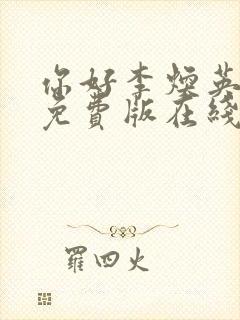 你好李煙英
免費版在綫
羅四火